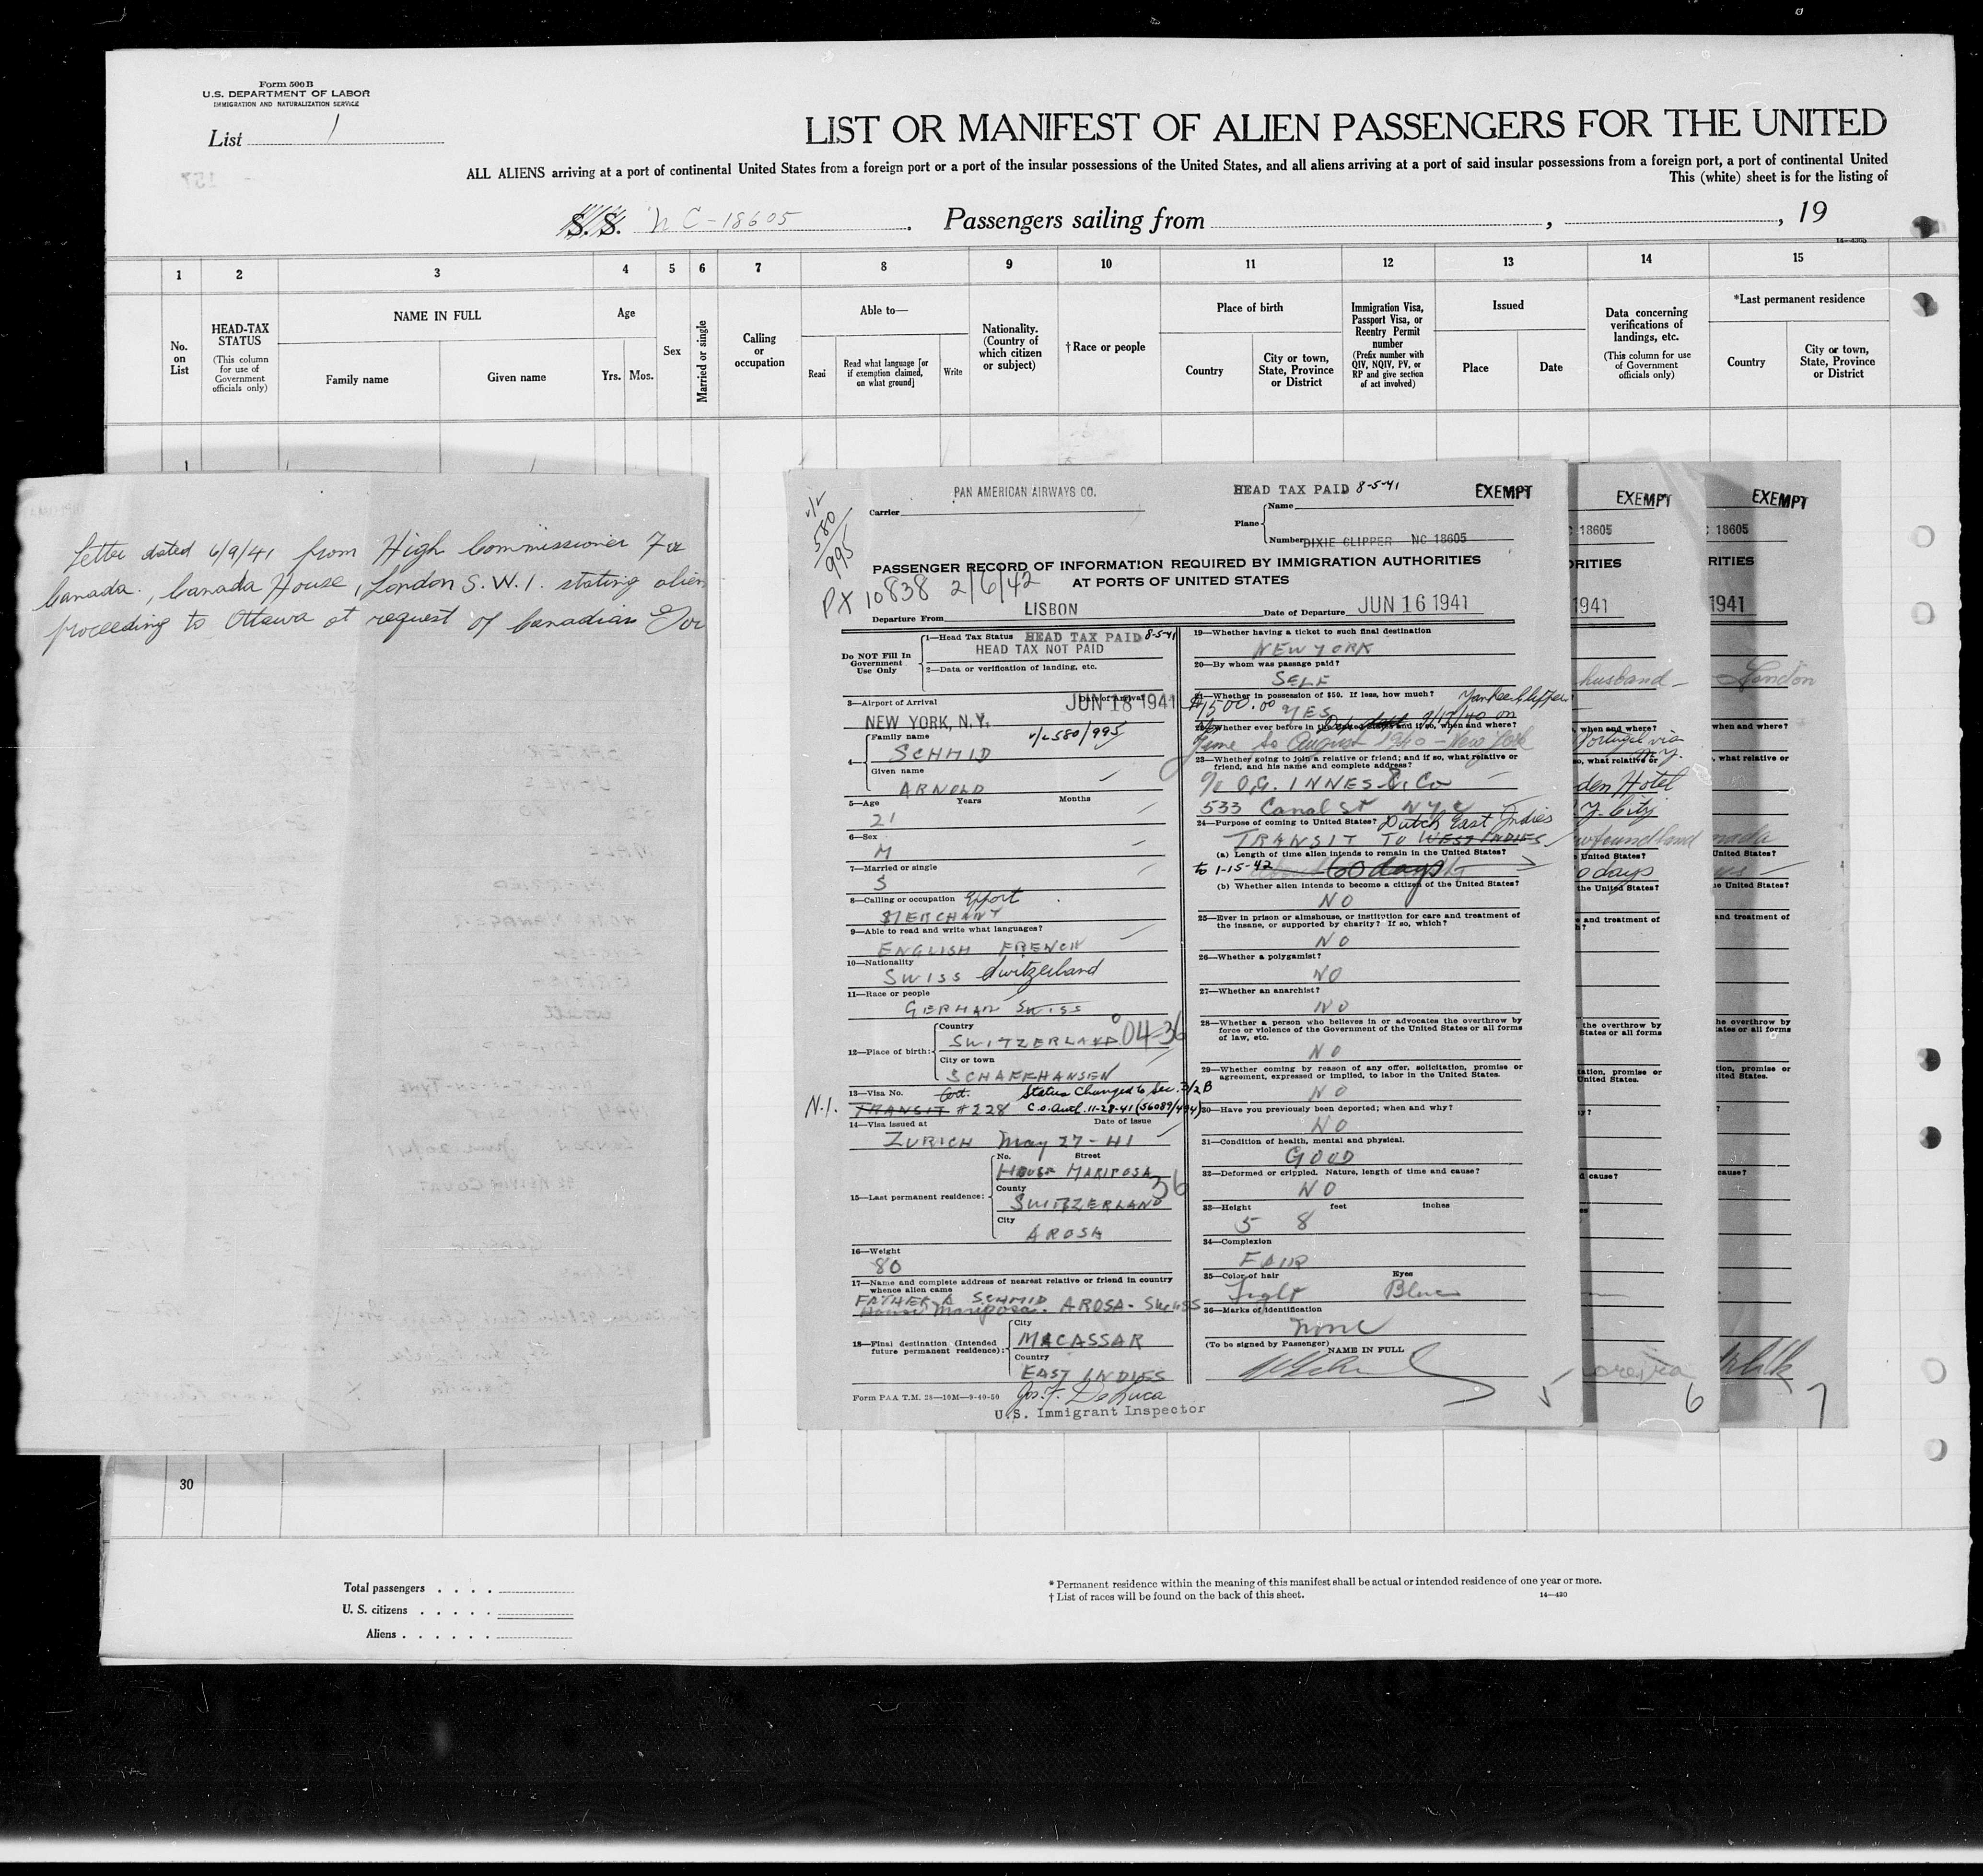 Form 500 B
U.S. DEPARTMENT OF LABOR
IMMIGRATION AND NATURALIZATION SERVICE
List 1
LIST OR MANIFEST OF ALIEN PASSENGERS FOR THE UNITED
ALL ALIENS arriving at a port of continental United States from a foreign port or a port of the insular possessions of the United States, and all aliens arriving at a port of said insular possessions from a foreign port, a port of continental United
This (white) sheet is for the listing of
S.S. NC-18605. Passengers sailing from , , 19
1 2 3 4 5 6 7 8 9 10 11 12 13 14 15
No. on List
HEAD-TAX STATUS
(This column for use of Government officials only)
NAME IN FULL
Family name
Given name
Age
Yrs. Mos.
Sex
Married or single
Calling or occupation
Able to—
Read
Read what language [or if exemption claimed, on what ground]
Write
Nationality. (Country of which citizen or subject)
†Race or people
Place of birth
Country
City or town, State, Province or District
Immigration Visa, Passport Visa, or Reentry Permit number
(Prefix number with QIV, NQIV, PV, or RP and give section of act involved)
Issued
Place
Date
Data concerning verifications of landings, etc.
(This column for use of Government officials only)
*Last permanent residence
Country
City or town, State, Province or District
Letter dated 6/9/41 from High Commissioner For
Canada., Canada House, London S.W.1. stating alien
proceeding to Ottawa at request of Canadian Gov
PAN AMERICAN AIRWAYS CO.
Carrier
HEAD TAX PAID 8-5-41
EXEMPT
Name
Plane
Number DIXIE CLIPPER NC 18605
v/c 580/995
PASSENGER RECORD OF INFORMATION REQUIRED BY IMMIGRATION AUTHORITIES
AT PORTS OF UNITED STATES
PX 10838 2/6/42
Departure From LISBON
Date of Departure JUN 16 1941
Do NOT Fill In Government Use Only
1—Head Tax Status HEAD TAX PAID 8-5-41
HEAD TAX NOT PAID
2—Data or verification of landing, etc.
3—Airport of Arrival
Date of Arrival
JUN 18 1941
NEW YORK, N.Y.
4—
Family name v/c 580/995
SCHMID
Given name
ARNOLD
5—Age Years Months
21
6—Sex
M
7—Married or single
S
8—Calling or occupation Export
MERCHANT
9—Able to read and write what languages?
ENGLISH FRENCH
10—Nationality
SWISS Switzerland
11—Race or people
GERMAN SWISS
12—Place of birth:
Country
SWITZERLAND 04-36
City or town
SCHAFFHANSEN
13—Visa No. Cert. Status Changed to Sec. 3/2 B
N.I. TRANSIT #228 C.O. Auth. 11-28-41 (56089/494)
14—Visa issued at Date of issue
ZURICH May 27-41
15—Last permanent residence:
No. Street
HOUSE MARIPOSA
County
SWITZERLAND 36
City
AROSA
16—Weight
80
17—Name and complete address of nearest relative or friend in country whence alien came
FATHER A SCHMID
House Mariposa. AROSA - Swiss
18—Final destination (Intended future permanent residence):
City
MACASSAR
Country
EAST INDIES
Form PAA T.M. 28—10M—9-40-50
Jos. F. DeLuca
U.S. Immigrant Inspector
19—Whether having a ticket to such final destination
NEW YORK
20—By whom was passage paid?
SELF
21—Whether in possession of $50. If less, how much? Yankee Clipper
$1500.00 YES
22—Whether ever before in the United States and if so, when and where?
9/17/40 on
June to August 1940 - New York
23—Whether going to join a relative or friend; and if so, what relative or friend, and his name and complete address?
c/o O.G. INNES & Co
533 Canal St NYC
24—Purpose of coming to United States? Dutch East Indies
TRANSIT TO WEST INDIES
(a) Length of time alien intends to remain in the United States?
to 1-15-42 60 days
(b) Whether alien intends to become a citizen of the United States?
NO
25—Ever in prison or almshouse, or institution for care and treatment of the insane, or supported by charity? If so, which?
NO
26—Whether a polygamist?
NO
27—Whether an anarchist?
NO
28—Whether a person who believes in or advocates the overthrow by force or violence of the Government of the United States or all forms of law, etc.
NO
29—Whether coming by reason of any offer, solicitation, promise or agreement, expressed or implied, to labor in the United States.
NO
30—Have you previously been deported; when and why?
NO
31—Condition of health, mental and physical.
GOOD
32—Deformed or crippled. Nature, length of time and cause?
NO
33—Height feet inches
5 8
34—Complexion
FAIR
35—Color of hair Eyes
Light Blue
36—Marks of identification
none
(To be signed by Passenger) NAME IN FULL
EXEMPT
18605
1941
husband -
when and where?
Portugal via
N.Y.
den Hotel
Y. City
wfoundland
United States?
0 days
6
EXEMPT
18605
RITIES
1941
London
when and where?
what relative or
nada
United States?
and treatment of
the overthrow by
tates or all forms
tation, promise or
ited States.
cause?
7
30
Total passengers
U. S. citizens
Aliens
* Permanent residence within the meaning of this manifest shall be actual or intended residence of one year or more.
† List of races will be found on the back of this sheet.
14—430